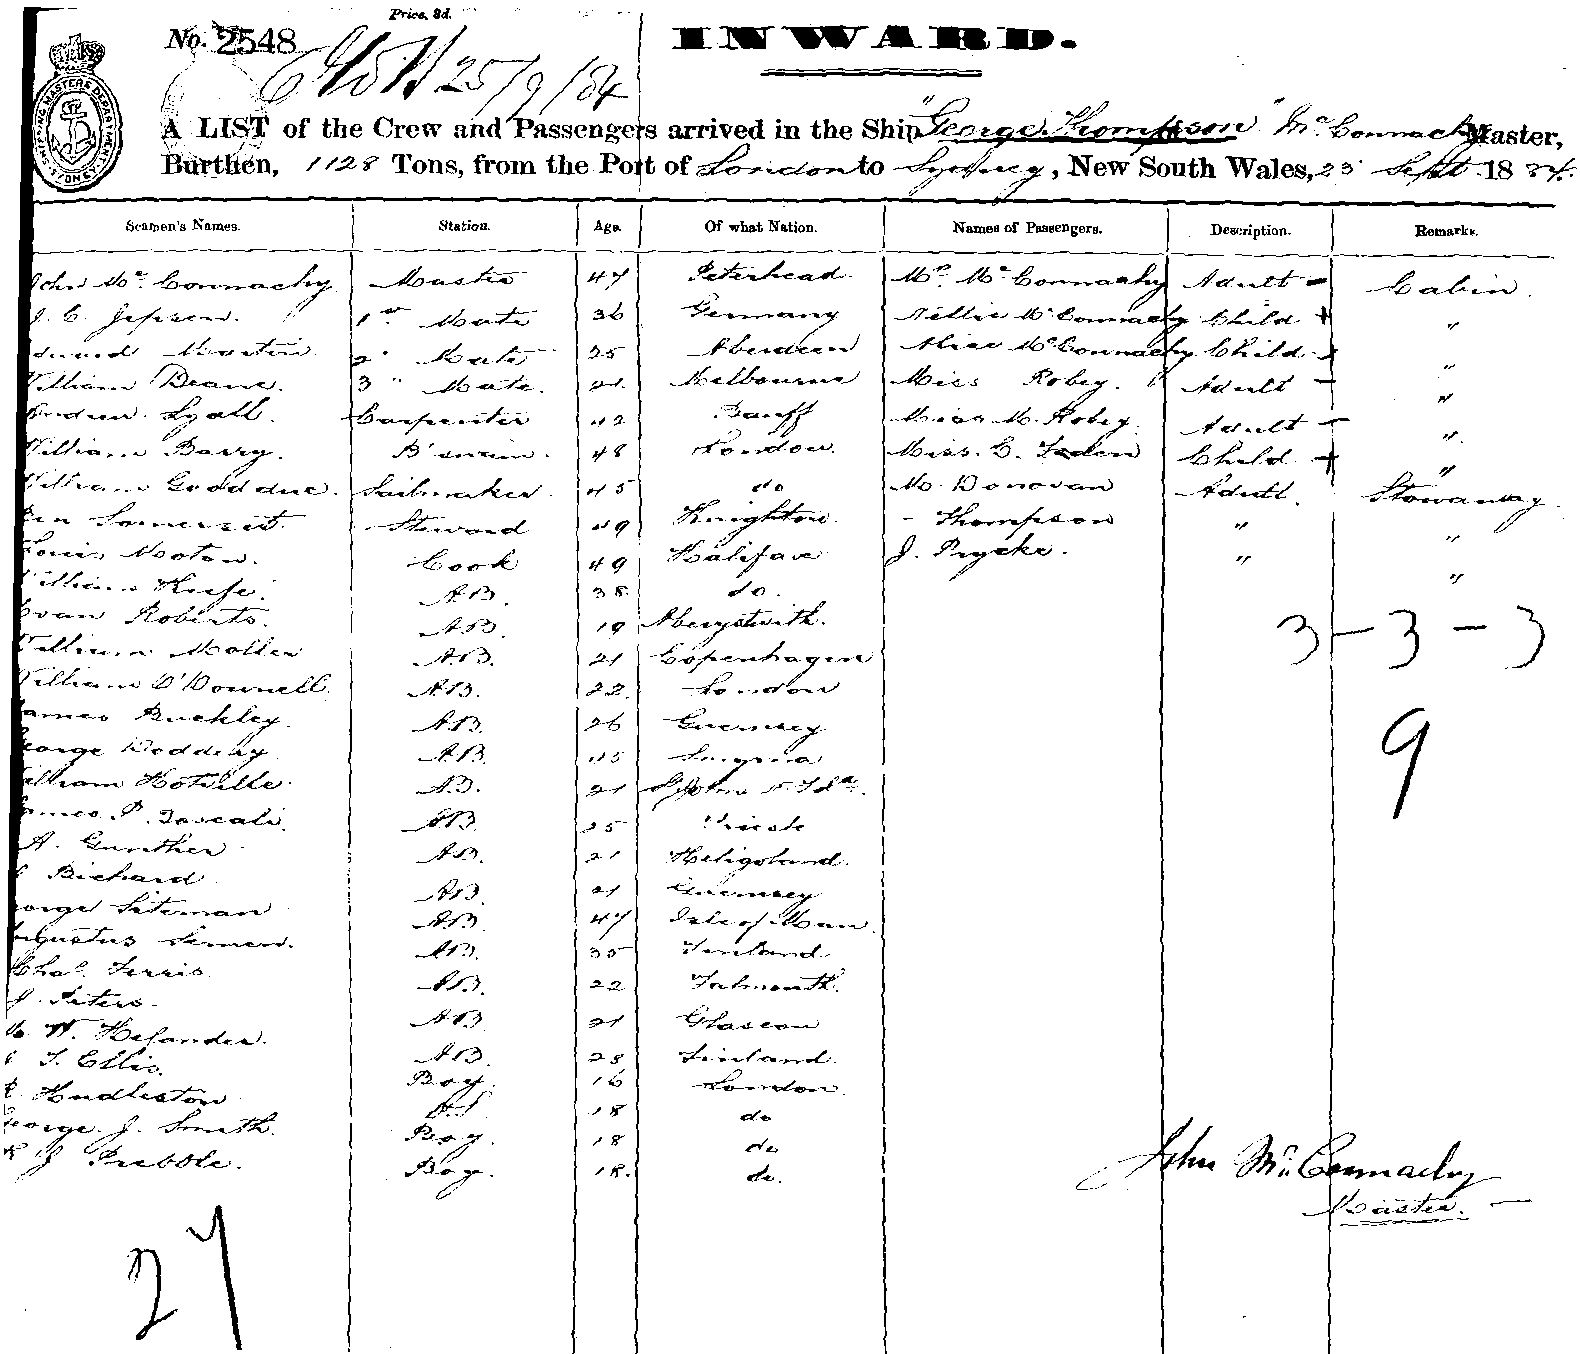 Price, 3d.
No. 2548
INWARD.
25/9/84
A LIST of the Crew and Passengers arrived in the Ship "George Thompson" Mc Connachy Master,
Burthen, 1128 Tons, from the Port of London to Sydney, New South Wales, 23 Sept 1884.
SHIPPING MASTERS DEPARTMENT SYDNEY
Seamen's Names. Station. Age. Of what Nation. Names of Passengers. Description. Remarks.
John Mc Connachy Master 47 Peterhead Mrs Mc Connachy Adult - Cabin
J. C. Jepsen. 1st Mate 36 Germany Nellie McConnachy Child + "
Edward Marten 2d Mate 25 Aberdeen Alice McConnachy Child "
William Deane. 3 " Mate. 21 Melbourne Miss Robey. Adult - "
Andrew Lyall. Carpenter 42 Banff Miss M. Robey Adult - "
William Barry. B'swain. 48 London. Miss. C. Faden Child + "
William Goodduc. Sailmaker. 45 do M. Donovan Adult. Stowaway
Ben Somerset Steward 49 Knighton - Thompson " "
Louis Moton. Cook 49 Halifax J. Prycke. " "
William Kiefe. A.B. 38 do.
Evan Roberts. A.B. 19 Aberystwith. 3 - 3 - 3
William Moller A.B. 21 Copenhagen
William O'Donnell. A.B. 22 London
James Buckley. A.B. 26 Guernsey 9
George Doddery A.B. Smyrna
William Hotville A.B. 21 St Johns
James P. A.B. 25 Trieste
A. Gunther A.B. 21 Heligoland.
Bichard A.B. 21 Guernsey
George Sateman A.B. 47 Isle of Man
Augustus Simen. A.B. 35 Finland
Chas. Ferris A.B. 22 Falmouth.
J. Peters. A.B. 21 Glascow
W. Helander. A.B. 28 Finland.
T. Ellis. Boy. 16 London
Hudleston O.S. 18 do
George. J. Smith. Boy. 18 do
J Prebble. Boy. 18. do.
John Mc Connachy
Master.
27